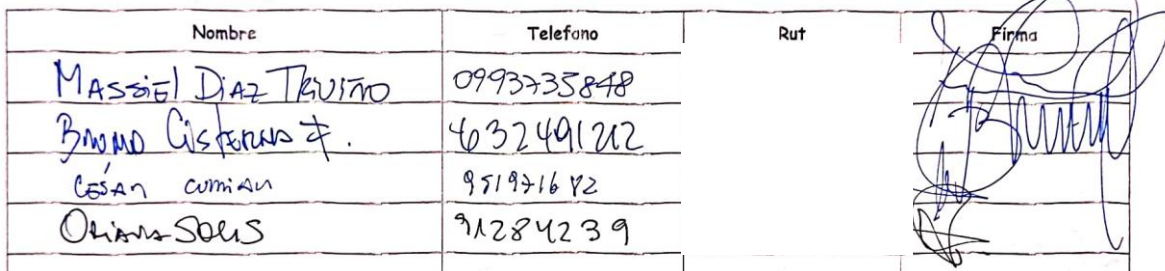 Nombre Telefono Rut Firma
Massiel Diaz Triviño 0993735848
Bruno Cisternas F. 4632491212
CESAR cumian 951971682
Oriana Solis 91284239